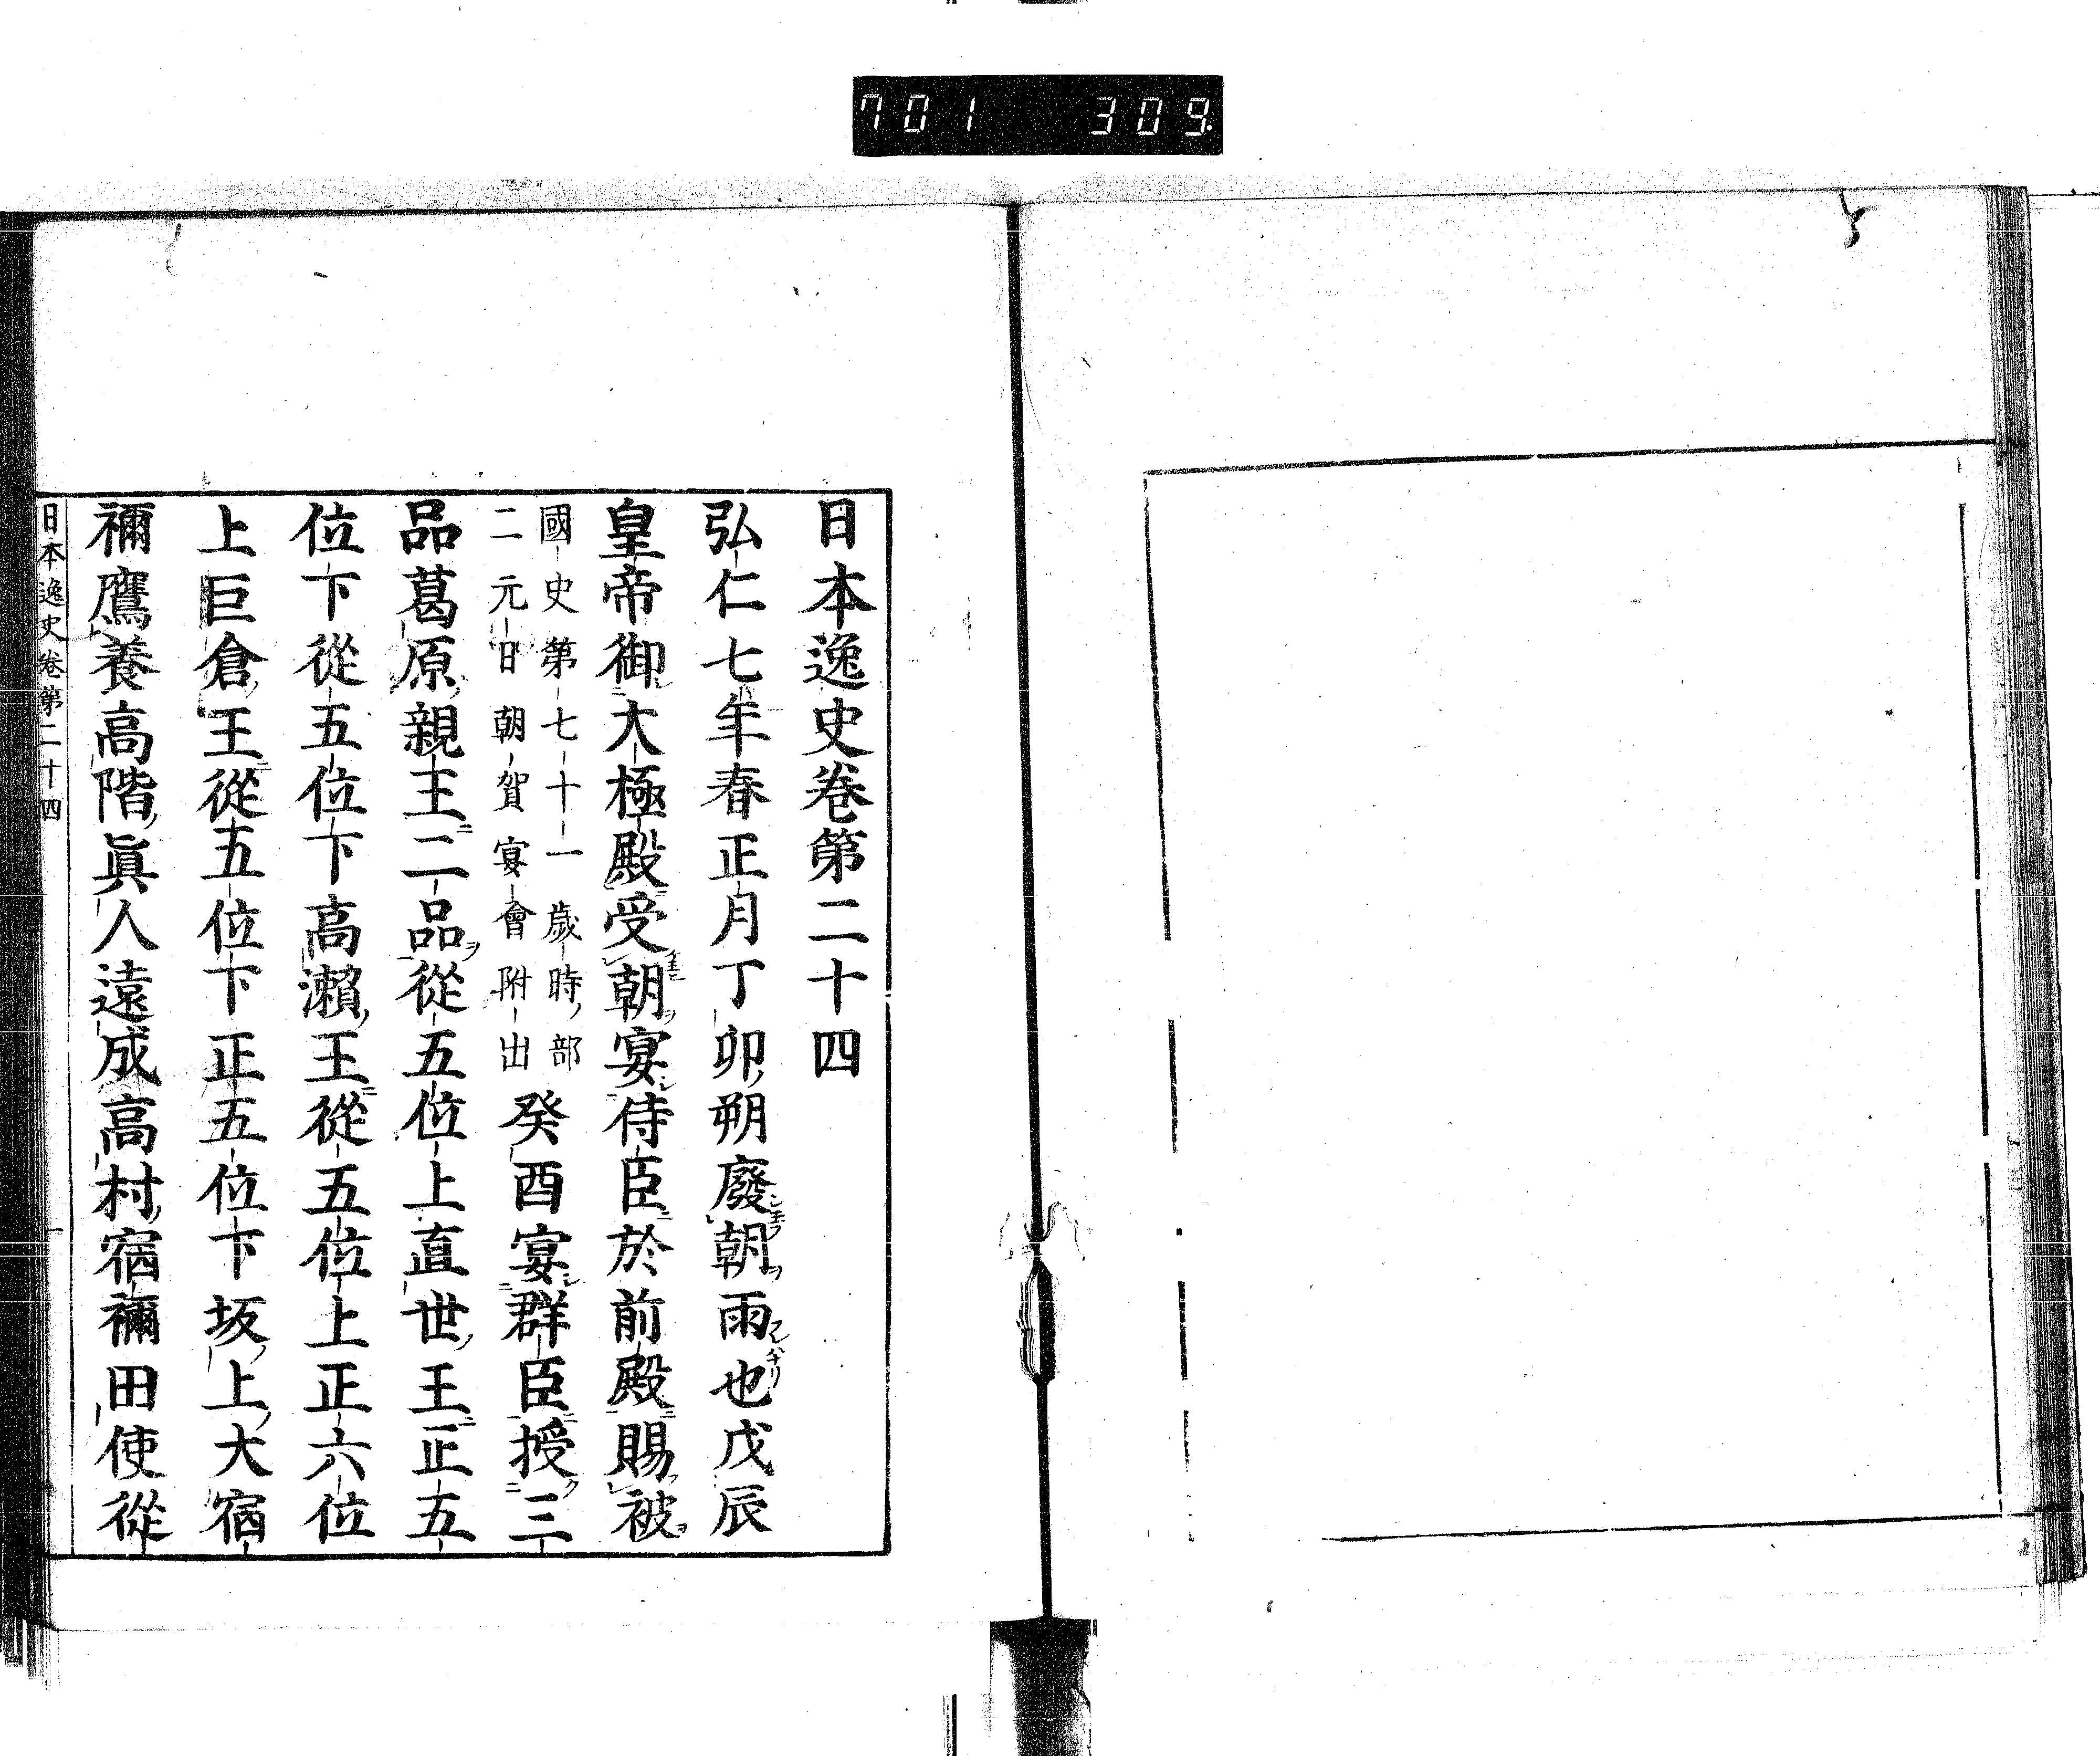 701 309
日本逸史卷第二十四
弘仁七年春正月丁卯朔廢朝雨也戊辰
皇帝御大極殿受朝宴侍臣於前殿賜被
國史第七十一歲時部
二元日朝賀宴會附出
癸酉宴群臣授三
品葛原親王二品從五位上直世王正五
位下從五位下高瀬王從五位上正六位
上巨倉王從五位下正五位下坂上大宿
禰鷹養高階眞人遠成高村宿禰田使從
日本逸史卷第二十四 一